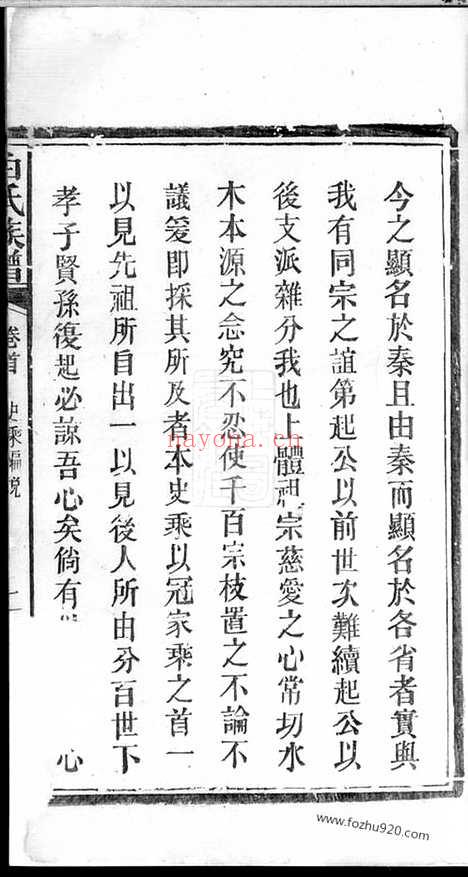 今之顯名於秦且由秦而顯名於各省者實與
我有同宗之誼第起公以前世次難續起公以
後支派雜分我也上體祖宗慈愛之心常切水
木本源之念究不忍使千百宗枝置之不論不
議爰即採其所及者本史乘以冠家乘之首一
以見先祖所自出一以見後人所由分百世下
孝子賢孫復起必諒吾心矣倘有 心
氏族譜 卷首 史乘編說
nayona.cn
www.fozhu920.com